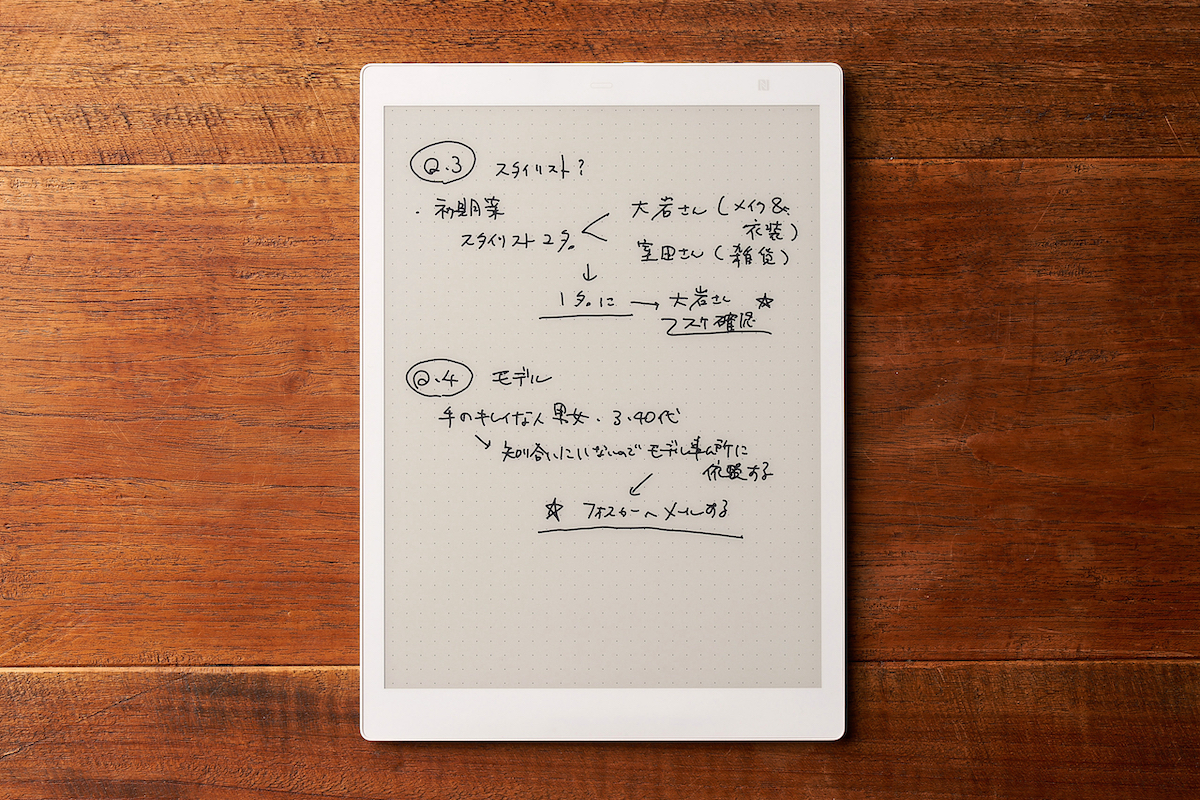 Q.3 スタイリスト?
・初期案
スタイリスト2名。
大岩さん(メイク&
衣装)
室田さん(雑貨)
↓
1名。に → 大岩さん ☆
スケ確認
Q.4 モデル
手のキレイな人 男女・3.40代
↘ 知り合いにいないのでモデル事ム所に
依頼する
↙
☆ フォスターへメールする